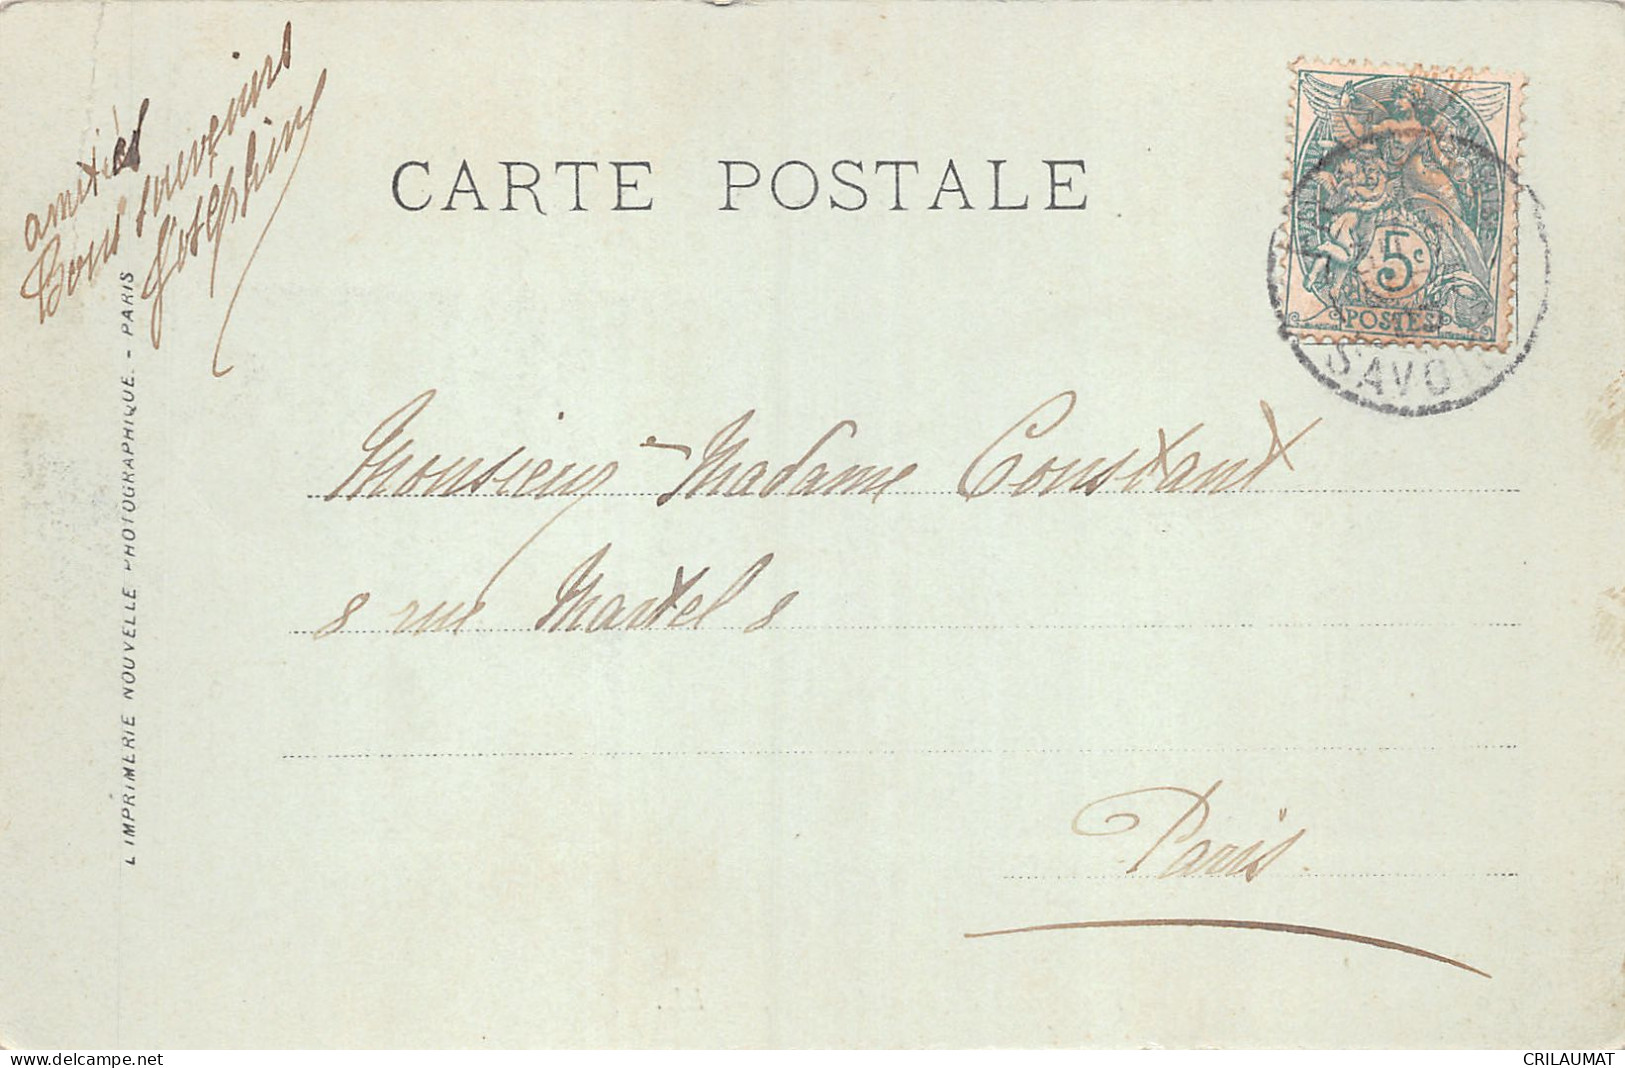 amitiés
Bons souvenirs
Joséphine
CARTE POSTALE
RÉPUBLIQUE FRANÇAISE
5c
POSTES
SAVOIE
Monsieur Madame Constant
8 rue Martel 8
Paris
L'IMPRIMERIE NOUVELLE PHOTOGRAPHIQUE. - PARIS
www.delcampe.net
CRILAUMAT